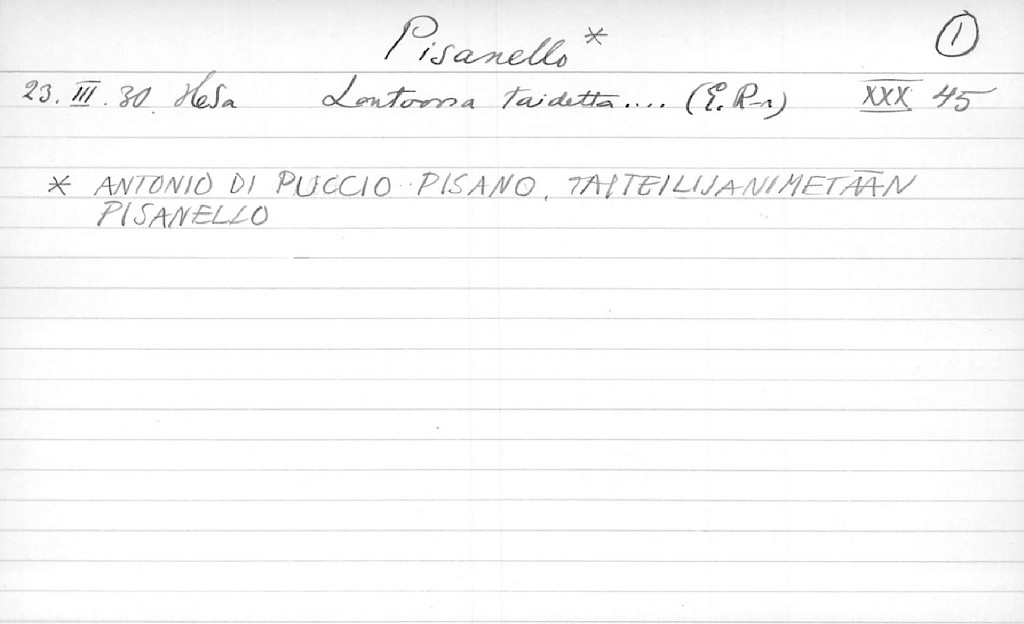 Pisanello* 1
23. III. 30. HeSa Lontoossa taidetta.... (E. R-n) XXX 45
* ANTONIO DI PUCCIO PISANO, TAITEILIJANIMETÄÄN
PISANELLO